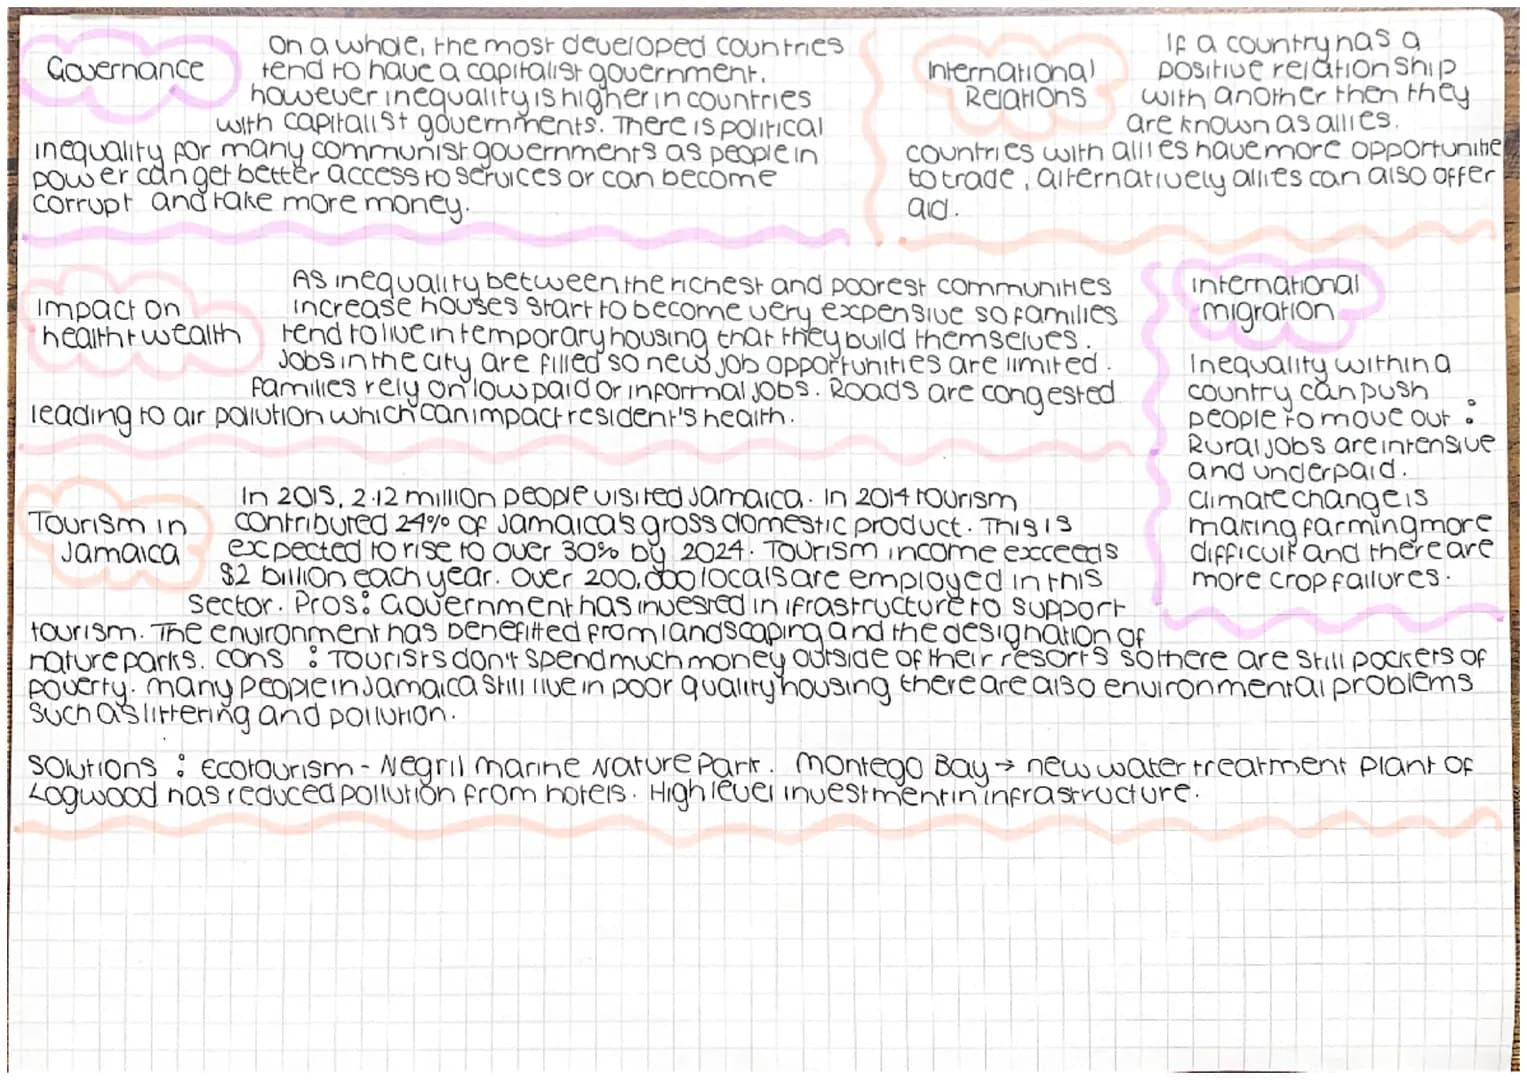 Governance
On a whole, the most developed countries
tend to have a capitalist government,
however inequality is higher in countries
with capitalist governments. There is political
inequality for many communist governments as people in
power can get better access to services or can become
corrupt and take more money.
International
Relations
If a country has a
positive relationship
with another then they
are known as allies.
countries with allies have more opportunitie
to trade, alternatively allies can also offer
aid.
Impact on
health + wealth
As inequality between the richest and poorest communities
increase houses start to become very expensive so families
tend to live in temporary housing that they build themselves.
Jobs in the city are filled so new job opportunities are limited.
Families rely on low paid or informal jobs. Roads are congested
leading to air pollution which can impact resident's health.
international
migration
Inequality within a
country can push
people to move out :
Rural jobs are intensive
and underpaid.
Climate change is
making farming more
difficult and there are
more crop failures.
Tourism in
Jamaica
In 2015, 2.12 million people visited Jamaica. In 2014 tourism
contributed 24% of Jamaica's gross domestic product. This is
expected to rise to over 30% by 2024. Tourism income exceeds
$2 billion each year. Over 200,000 locals are employed in this
sector. Pros: Government has invested in ifrastructure to support
tourism. The environment has benefitted from landscaping and the designation of
nature parks. cons : Tourists don't spend much money outside of their resorts so there are still pockets of
poverty. many people in Jamaica still live in poor quality housing there are also environmental problems
such as littering and pollution.
Solutions : Ecotourism - Negril marine Nature Park. Montego Bay → new water treatment plant of
Logwood has reduced pollution from hotels. High level investment in infrastructure.